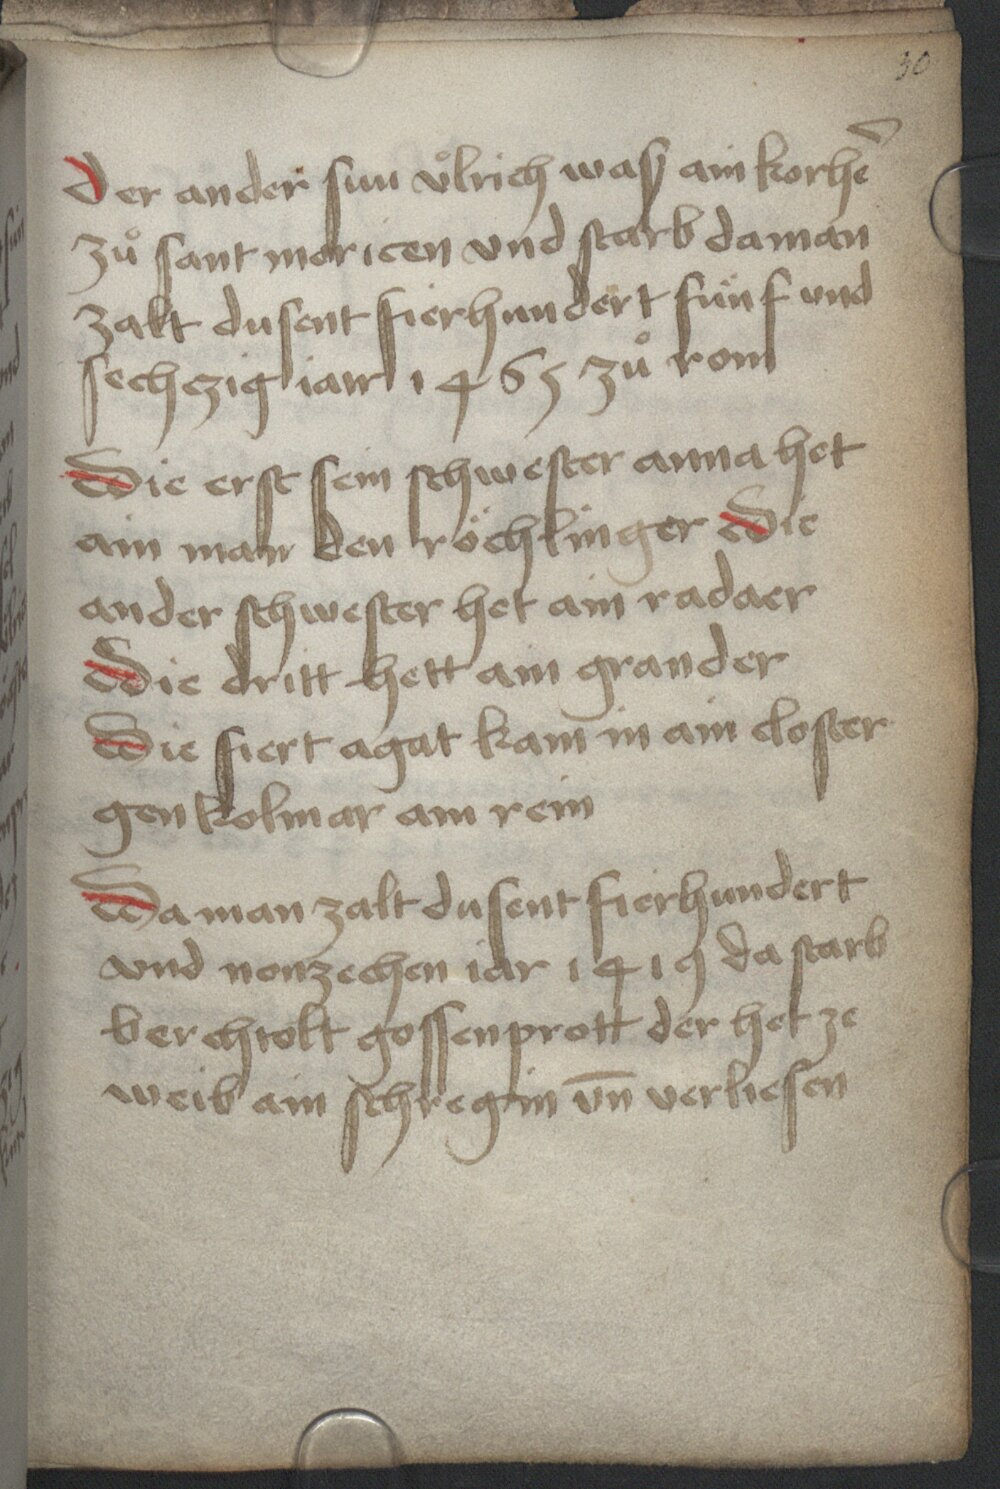 30
Der ander sun vͦlrich wasz ain korhe᷑
zuͦ sant moricen vnd starb da man
zalt dusent fierhundert fünf vnd
sechczig iaur 1465 zuͦ rom
Die erst sein schwester anna het
ain man den röchlinger Die
ander schwester het ain radaer
Die dritt hett ain grander
Die fiert agat kam in ain closter
gen kolmar am rein
Da man zalt dusent fierhundert
vnd nonzechen iar 1419 da starb
berchtolt gossenprott der het ze
weib ain schregin vn̄ verliesen